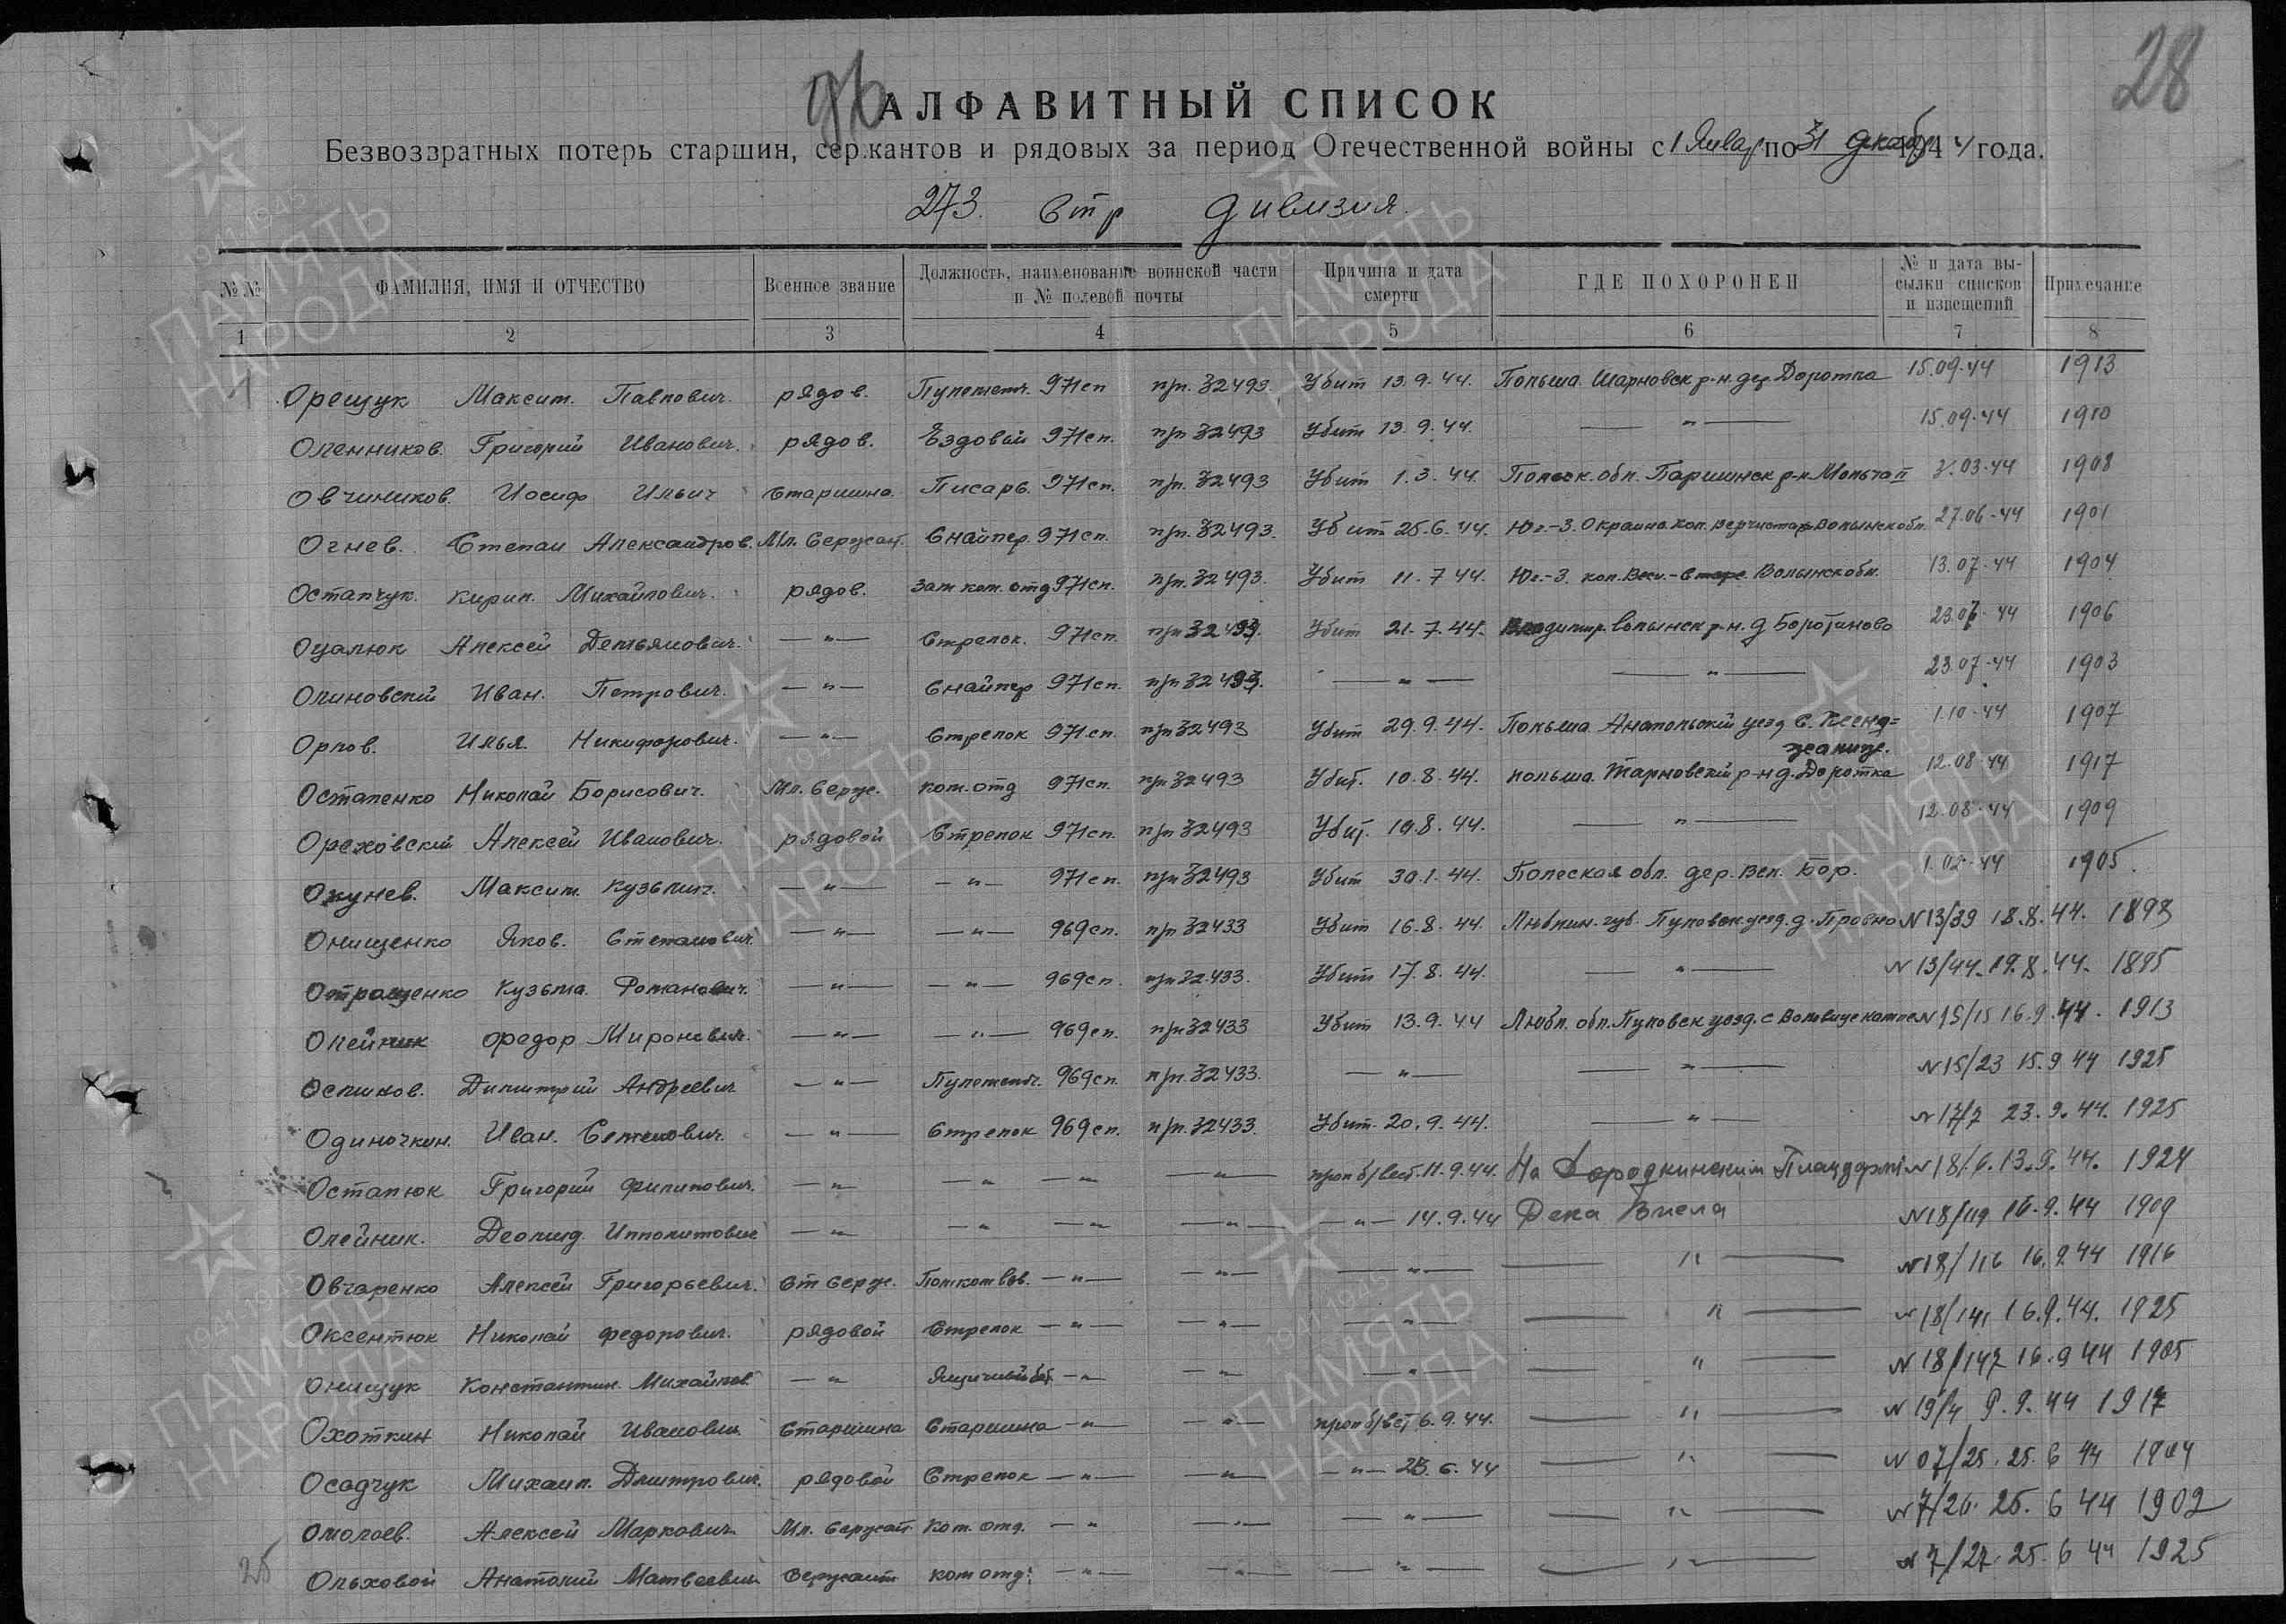 28
АЛФАВИТНЫЙ СПИСОК
Безвозвратных потерь старшин, сержантов и рядовых за период Отечественной войны с 1 Январ по 31 декабр 1944 года.
273. стр дивизия.
№№ ФАМИЛИЯ, ИМЯ И ОТЧЕСТВО Военное звание Должность, наименование воинской части и № полевой почты Причина и дата смерти ГДЕ ПОХОРОНЕН № и дата высылки списков и извещений Примечание
1 2 3 4 5 6 7 8
1 Орещук Максим. Павлович. рядов. Пулеметч. 971сп п/п. 32493. Убит 13.9.44. Польша. р-н. дер. Доротка 15.09.44 1913
Оленников. Григорий Иванович. рядов. Ездовой 971сп. п/п 32493 Убит 13.9.44. —"— 15.09.44 1910
Овчиников Иосиф Ильич Старшина. Писарь. 971сп. п/п. 32493 Убит 1.3.44. Полеск. обл. р-н 3.03.44 1908
Огнев. Степан Александров. Мл. Сержант. Снайпер. 971сп. п/п. 32493. Убит 25.6.44. Юг.-З. Окраина кол. Волынск обл. 27.06-44 1901
Остапчук. Кирил. Михайлович. рядов. Зам ком. отд 971сп. п/п. 32493. Убит 11.7.44. Юг.-З. кол. Волынск обл. 13.07-44 1904
Оцалюк Алексей Демьянович. —"— Стрелок. 971сп. п/п 32493. Убит 21.7.44. Владимир. Волынск р-н. д 23.07-44 1906
Олиновский Иван. Петрович. —"— Снайпер 971сп. п/п 32493. —"— —"— 23.07-44 1903
Орлов. Илья. Никифорович. —"— Стрелок 971сп. п/п 32493 Убит 29.9.44. Польша уезд с. 1.10-44 1907
Остапенко Николай Борисович. Мл. Серж. Ком. отд 971сп. п/п 32493 Убит. 10.8.44. Польша. Тарновский р-н д. Доротка 12.08-44 1917
Ореховский Алексей Иванович. рядовой Стрелок 971сп. п/п 32493 Убит. 10.8.44. —"— 12.08-44 1909
Окунев. Максим. Кузьмич. —"— —"— 971сп. п/п 32493 Убит 30.1.44. Полеская обл. дер. Вел. Бор. 1.02-44 1905.
Онищенко Яков. Степанович. —"— —"— 969сп. п/п 32433 Убит 16.8.44. Люблин. губ. Пуловск уезд. д. N13/39 18.8.44. 1898
Отрощенко Кузьма. Романович. —"— —"— 969сп. п/п 32433. Убит 17.8.44. —"— N13/44. 19.8.44. 1895
Олейник Федор Миронович. —"— —"— 969сп. п/п 32433 Убит 13.9.44 Любл. обл. Пуловск уезд. с N15/15 16.9.44. 1913
Оспинов. Димитрий Андреевич. —"— Пулеметч. 969сп. п/п. 32433. —"— —"— N15/23 15.9.44 1925
Одиночкин. Иван. Семенович. —"— Стрелок 969сп. п/п. 32433. Убит. 20.9.44. —"— N17/7 23.9.44. 1925
Остапюк Григорий Филипович. —"— —"— —"— —"— проп б/вест. 11.9.44. На Плацдарм N18/6. 13.9.44. 1924
Олейник. Леонид Ипполитович —"— —"— —"— —"— —"— 14.9.44 Река Висла N18/119 16.9.44 1909
Овчаренко Алексей Григорьевич. Ст Серж. Пом ком взв. —"— —"— —"— —"— N18/116 16.9.44 1916
Оксентюк Николай Федорович. рядовой Стрелок —"— —"— —"— —"— N18/141 16.9.44. 1925
Онищук Константин. Михайлов. —"— —"— —"— —"— —"— N18/147 16.9.44 1905
Охоткин Николай Иванович. Старшина Старшина —"— —"— проп б/вест 6.9.44. —"— N19/4 9.9.44 1917
Осадчук Михаил. Дмитрович. рядовой Стрелок —"— —"— —"— 25.6.44 —"— N07/25. 25.6 44 1904
Омолоев. Алексей Маркович. Мл. Сержант. Ком. отд. —"— —"— —"— —"— N7/26. 25.6 44 1902
25 Ольховой Анатолий Матвеевич. Сержант ком отд. —"— —"— —"— —"— N7/27. 25.6 44 1925